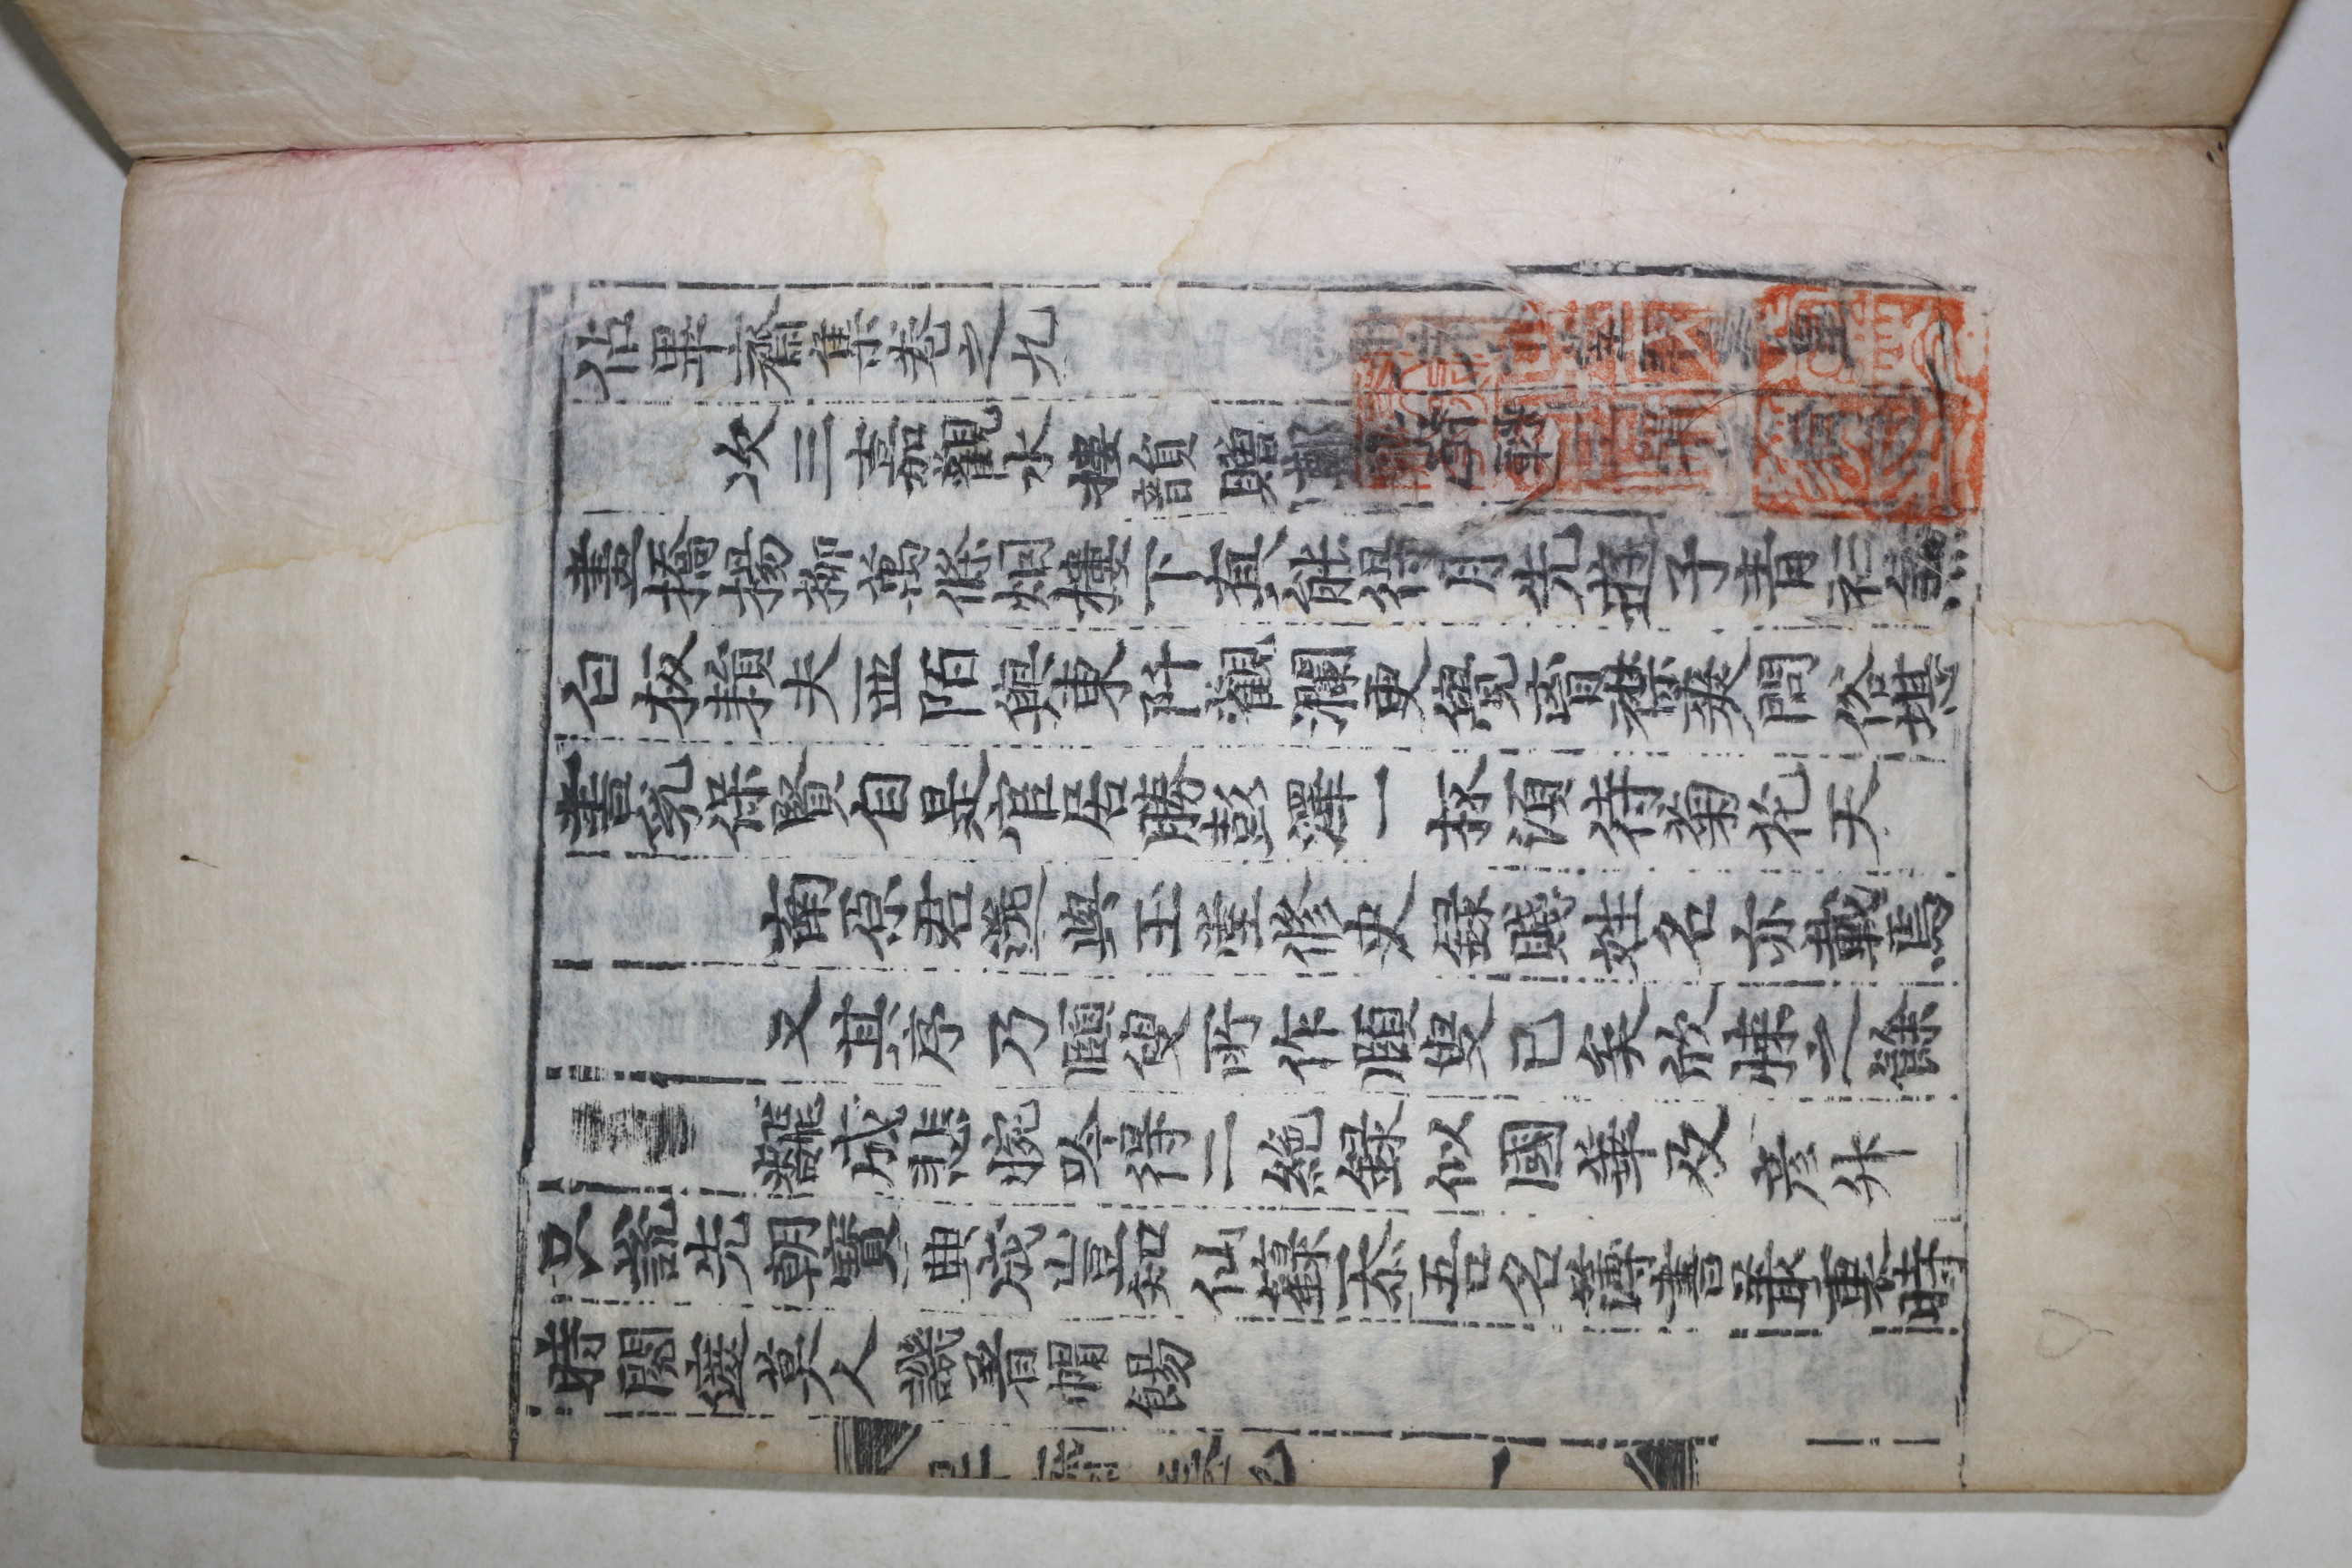 佔畢齋集卷之九
次三嘉觀水樓韻贈鄭
畫橋揚柳萬條烟樓下真能得月先遊子青衫無
白板賴夫西陌與東阡觀瀾更覺胷襟爽問俗堪
書乳保賢自是官居勝彭澤一採須待菊花天
南原君選與玉堂修史錄賤姓名亦載焉
又其序乃頤叟所作頤叟已矣欣悚之餘
成悲惋吟得二絶録似國華及彦升
只說先朝寶典成豈知仙籙忝吾名薄書叢裏時
時閱遮莫人譏著帽餳